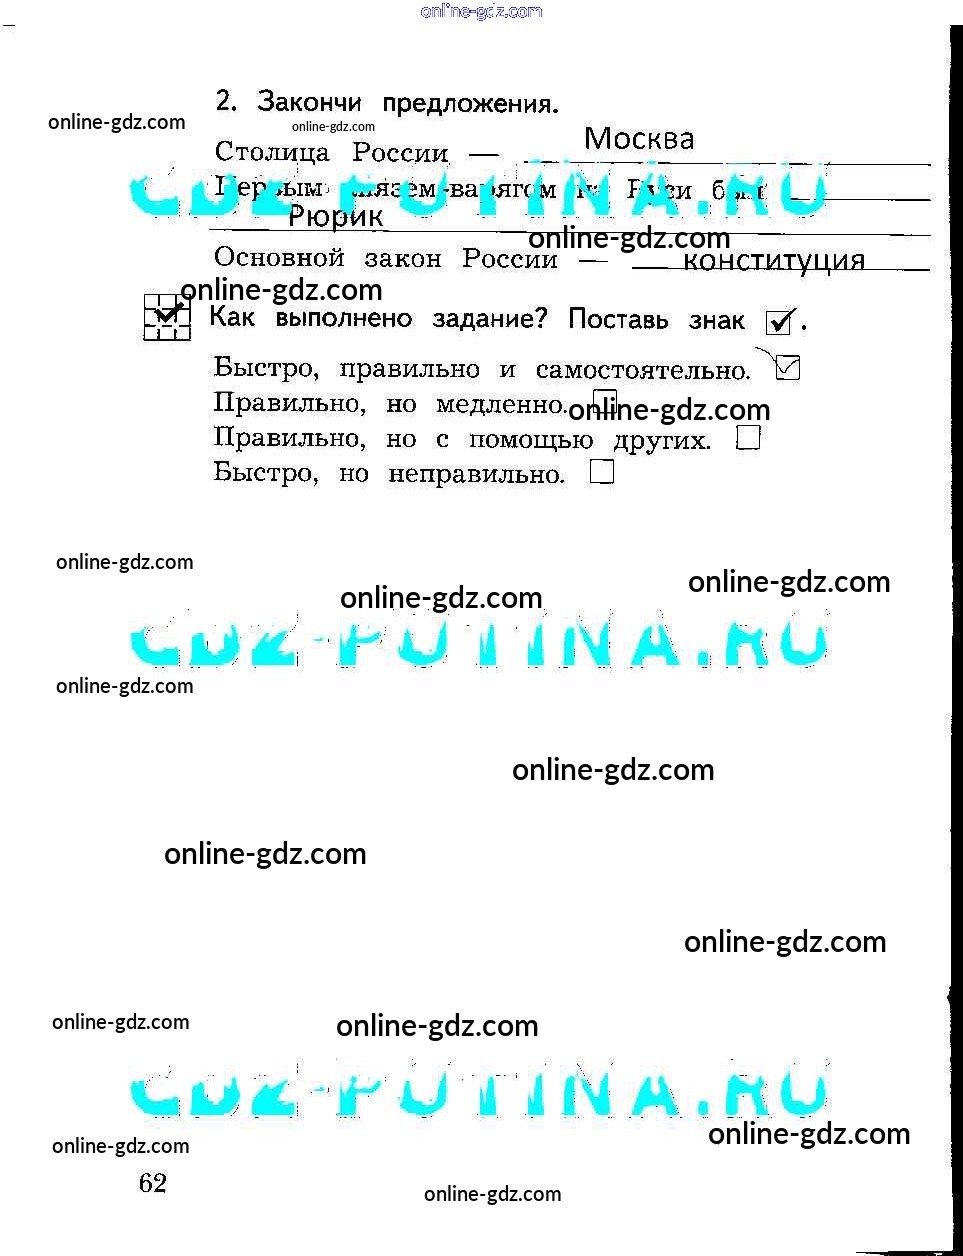 online-gdz.com
2. Закончи предложения.
online-gdz.com
online-gdz.com
Москва
Столица России —
GDZ-PUTINA.RU
Первым князем-варягом на Руси был
Рюрик
online-gdz.com
Основной закон России — конституция
online-gdz.com
Как выполнено задание? Поставь знак ✓.
Быстро, правильно и самостоятельно. ✓
Правильно, но медленно.
online-gdz.com
Правильно, но с помощью других.
Быстро, но неправильно.
online-gdz.com
online-gdz.com
online-gdz.com
GDZ-PUTINA.RU
online-gdz.com
online-gdz.com
online-gdz.com
online-gdz.com
online-gdz.com
online-gdz.com
GDZ-PUTINA.RU
online-gdz.com
online-gdz.com
62
online-gdz.com